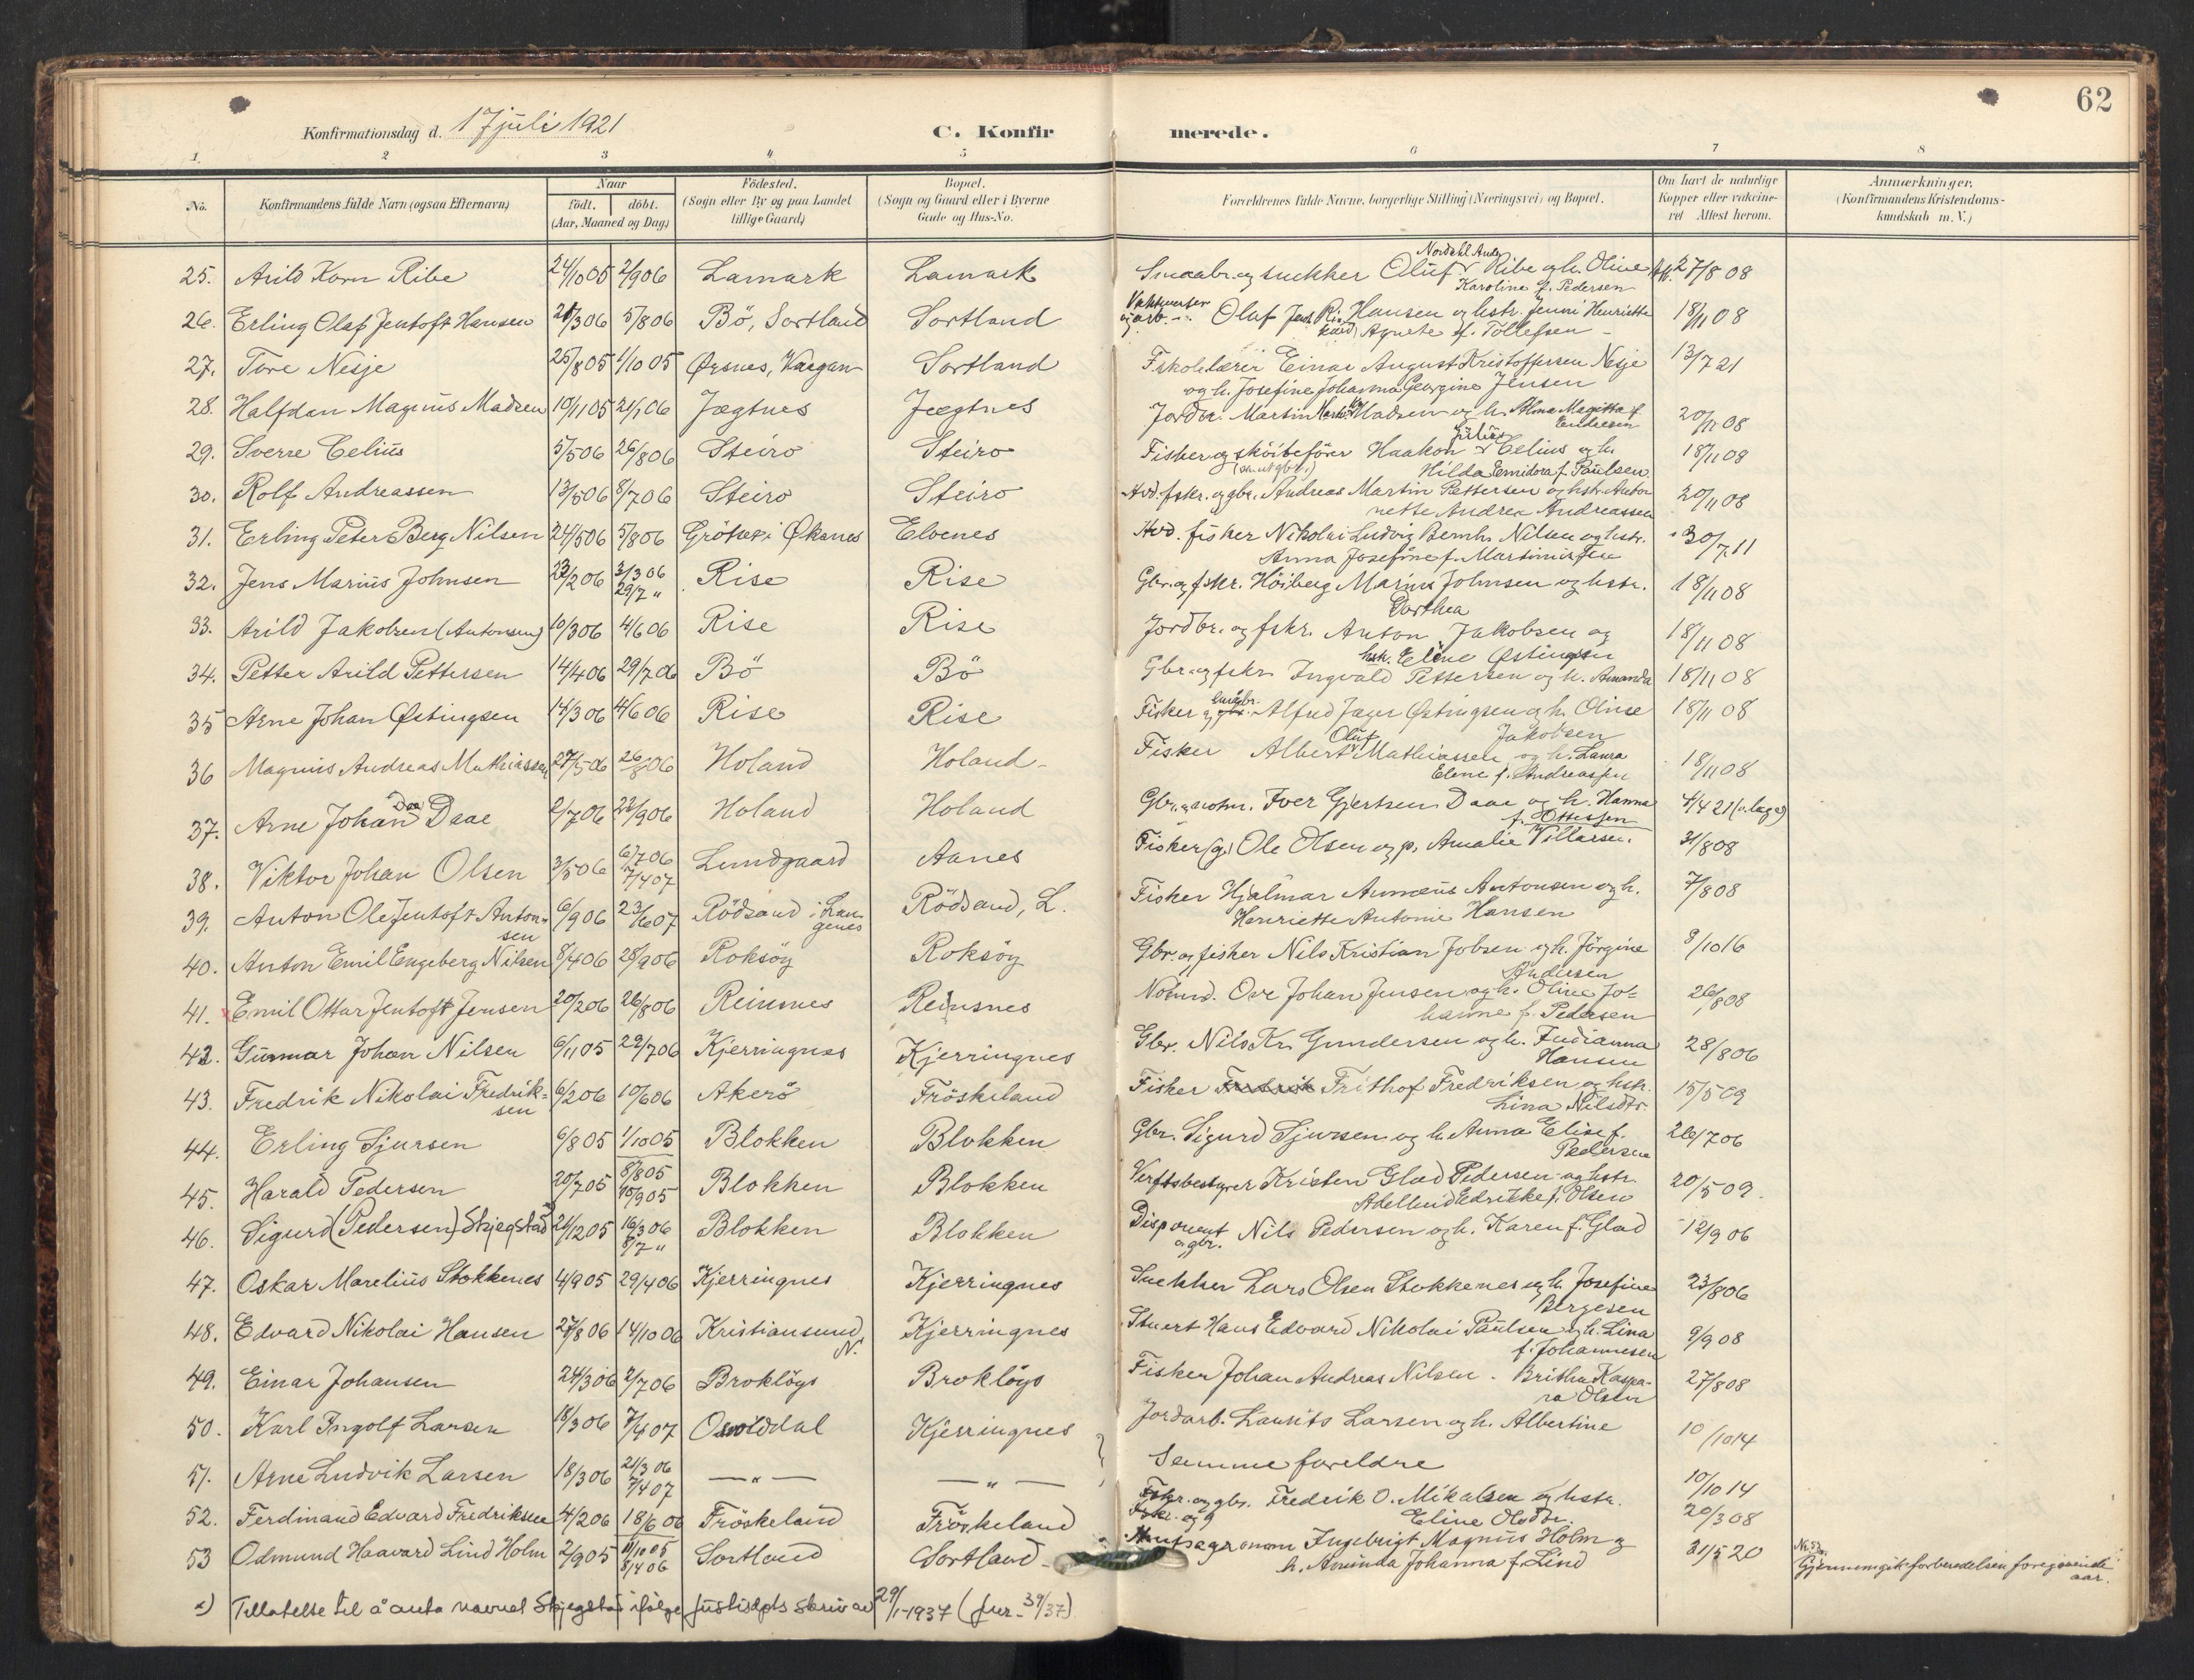 62
Konfirmationsdag d. 17 juli 1921
C. Konfirmerede.
1. 2 3 4 5 6 7 8
No.
Konfirmandens fulde Navn (ogsaa Efternavn)
Naar
födt. döbt.
(Aar, Maaned og Dag)
Födested.
(Sogn eller By og paa Landet
tillige Gaard)
Bopæl.
(Sogn og Gaard eller i Byerne
Gade og Hus-No.
Forældrenes fulde Navne, borgerlige Stilling (Næringsvei) og Bopæl.
Om havt de naturlige
Kopper eller vakcine-
ret Attest herom.
Anmærkninger.
(Konfirmandens Kristendoms-
kundskab m. V.)
25. Arild Korn Ribe 24/10 05 2/9 06 Lamark Lamark Smaabr. og snekker Oluf Nordahl Ribe og h. Oline 27/8 08
Karoline f. Pedersen
26. Erling Olaf Jentoft Hansen 21/3 06 5/8 06 Bö, Sortland Sortland og arb. Oluf Hansen og hstr. Jenni Henriette 18/11 08
Agnete f. Tollefsen
27. Tore Nesje 25/8 05 1/10 05 Ørsnes, Vaagan Sortland F.skolelærer Einar August Kristoffersen Nesje 13/7 21
og h. Josefine Johanna Georgine Jensen
28. Halfdan Magnus Madsen 10/11 05 21/1 06 Jægtnes Jægtnes Jordbr. Martin Madsen og h. Alma Maritta f. 20/11 08
Endresen
29. Sverre Celius 5/5 06 26/8 06 Steiro Steiro Fisker og sköitefører Haakon Julius Celius og h. 18/11 08
Hilda Emidora f. Paulsen
30. Rolf Andreassen 13/5 06 8/7 06 Steiro Steiro Hvd. fskr. og gbr. Andreas Martin Pettersen og hstr. Anto- 20/11 08
nette Andrea Andreassen
31. Erling Peter Berg Nilsen 24/5 06 5/8 06 Grötset i Øksnes Elvenes Hvd. fisker Nikolai Ludvig Bernh. Nilsen og hstr. 30/7 11
Anna Josefine f. Martinussen
32. Jens Marius Johnsen 23/2 06 3/3 06 Rise Rise Gbr. og fskr. Höiberg Marius Johnsen og hstr. 18/11 08
29/7 "
Dorthea
33. Arild Jakobsen (Antonsen) 10/3 06 4/6 06 Rise Rise Jordbr. og fskr. Anton Jakobsen og 18/11 08
hstr. Eline Østingsen
34. Petter Arild Pettersen 14/4 06 29/7 06 Bö Bö Gbr. og fskr. Ingvald Pettersen og h. Amanda 18/11 08
35 Arne Johan Østingsen 14/3 06 4/6 06 Rise Rise Fisker og smågbr. Alfred Jager Østingsen og h. Oline 18/11 08
Jakobsen
36 Magnus Andreas Mathiassen 27/5 06 26/8 06 Holand Holand Fisker Albert Oluf Mathiassen og h. Laura 18/11 08
Elene f. Andreassen
37. Arne Johan Daae 2/7 06 22/9 06 Holand Holand Gbr. og notm. Iver Gjertsen Daae og h. Hanna 4/4 21 (v. læge)
f. Ottessen
38. Viktor Johan Olsen 3/5 06 6/7 06 Lundgaard Aanes Fisker (g.) Ole Olsen og p. Amalie Villarsen. 31/8 08
7/4 07
39. Anton Ole Jentoft Anton- 6/9 06 23/6 07 Rödsand i Lan- Rödsand, L. Fisker Hjalmar Annæus Antonsen og h. 7/8 08
sen genes Henriette Antonie Hansen
40. Anton Emil Engeberg Nilsen 8/4 06 28/9 06 Roksöy Roksöy Gbr. og fisker Nils Kristian Jobsen og h. Jörgine 9/10 16
Andersen
41. Emil Ottar Jentoft Jensen 20/2 06 26/8 06 Reinsnes Reinsnes Notmd. Ove Johan Jensen og h. Oline Jo- 26/8 08
hanne f. Pedersen
42. Gunnar Johan Nilsen 6/11 05 22/7 06 Kjerringnes Kjerringnes Gbr. Nils Kr. Gundersen og h. Indianna 28/8 06
Hansen
43. Fredrik Nikolai Fredrik- 6/2 06 10/6 06 Akerö Fröskeland Fisker Fredrik Frithof Fredriksen og hstr. 15/5 09
sen Lina Nilsdtr.
44. Erling Sjursen 6/8 05 1/10 05 Blokken Blokken Gbr. Sigurd Sjursen og h. Anna Elise f. 26/7 06
Pedersen
45. Harald Pedersen 20/7 05 8/8 05 Blokken Blokken Verftsbestyrer Kristen Glad Pedersen og hstr. 20/5 09.
10/9 05 Adelleid Edrikke f. Olsen
46. Sigurd (Pedersen) Skjegstad 21/12 05 16/3 06 Blokken Blokken Disponent Nils Pedersen og h. Karen f. Glad 12/9 06
8/7 " og gbr.
47. Oskar Marelius Stokkenes 4/9 05 29/4 06 Kjerringnes Kjerringnes Snekker Lars Olsen Stokkenes og h. Josefine 23/8 06
Bergesen
48. Edvard Nikolai Hansen 27/8 06 14/10 06 Kristiansund Kjerringnes Stuert Hans Edvard Nikolai Paulsen og h. Lina 9/9 08
N. f. Johannesen
49. Einar Johansen 24/3 06 2/7 06 Broklöys Broklöys Fisker Johan Andreas Nilsen. Britha Kaspa- 27/8 08
ra Olsen
50. Karl Ingolf Larsen 18/3 06 7/4 07 Osvolddal Kjerringnes Jordarb. Lausits Larsen og h. Albertine 10/10 14
51. Arne Ludvik Larsen 18/3 06 21/3 06 — " — — " — Samme foreldre 10/10 14
7/4 07
52. Ferdinand Edvard Fredriksen 4/2 06 18/6 06 Fröskeland Fröskeland Fskr. og gbr. Fredrik O. Mikalsen og hstr. 20/3 08
Eline Olsdtr.
53 Odmund Haavard Lind Holm 2/9 05 11/10 05 Sortland Sortland Ingebrigt Magnus Holm og 31/5 20
8/4 06 h. Aminda Johanna f. Lind
No. 53.
Gjennemgik forberedelsen foregaaende
aar.
x) Tillatelse til å anta navnet Skjegstad ifølge Justisdpts skriv av 29/1-1937 (jnr. 39/37)